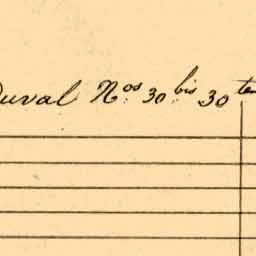 Duval Nos 30 bis 30 ter